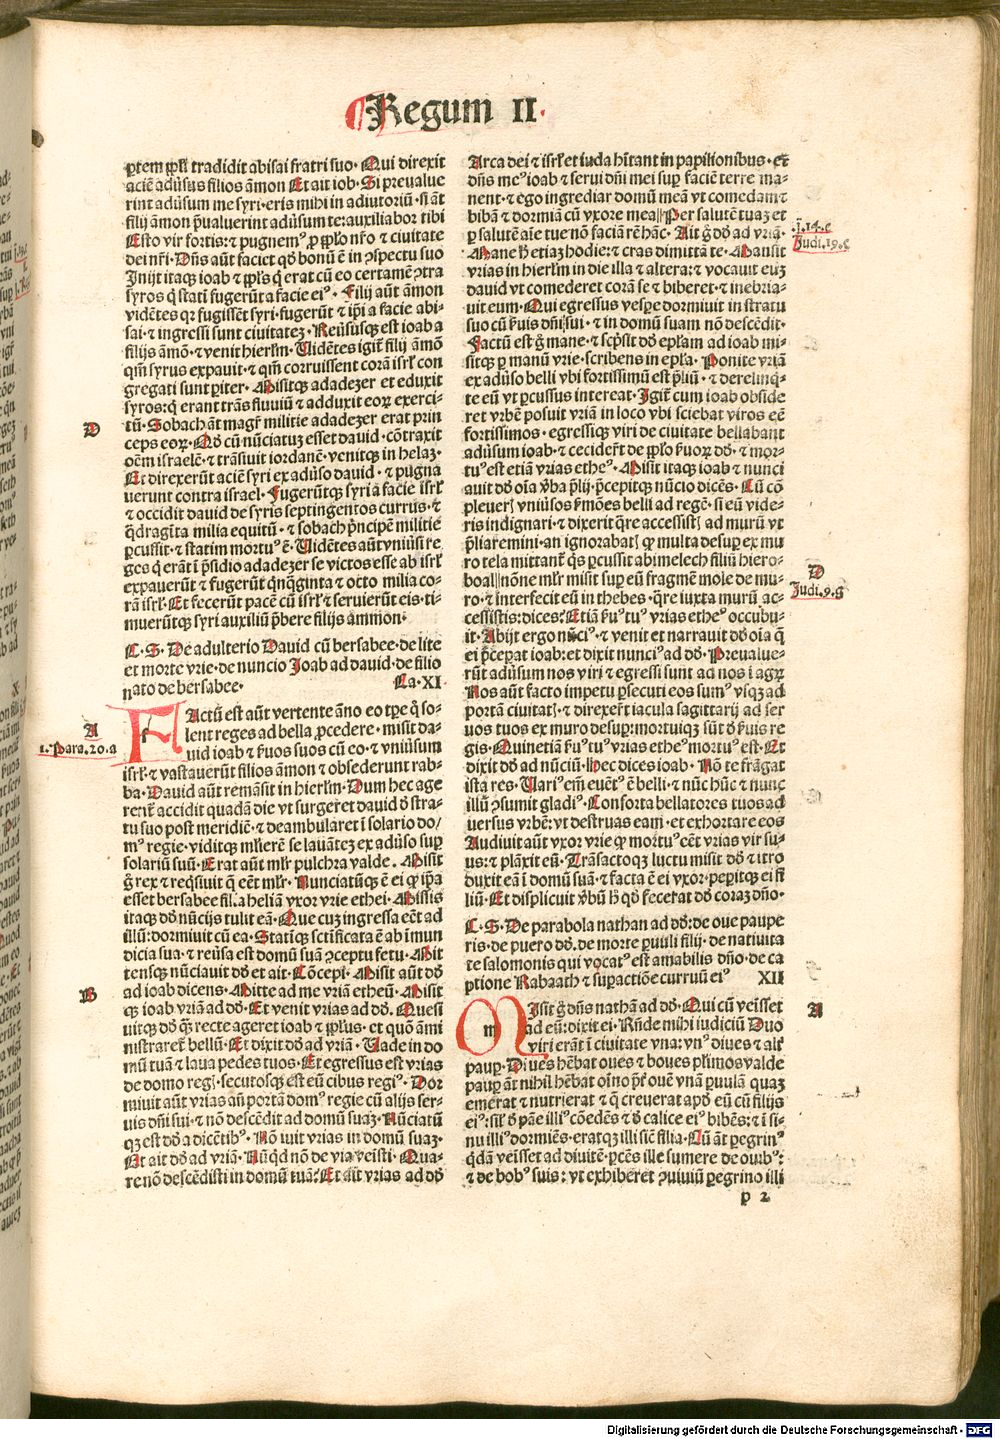 Regum II.
ꝑtem ppl̄i tradidit abisai fratri suo. Qui direxit
aciē adūsus filios āmon Et ait iob. Si preualue
rint adūsum me syri. eris mihi in adiutoriū. si āt
filij āmon p̄ualuerint adūsum te: auxiliabor tibi
Esto vir fortis: ⁊ pugnemꝰ ꝓ pp̄lo nr̄o ⁊ ciuitate
dei nr̄i. Dn̄s aūt faciet qd̓ bonū ē in ꝯspectu suo
Inijt itaqꝫ ioab ⁊ ppl̄s q̄ erat cū eo certamē ꝯtra
syros q̄ stati fugerūt a facie eiꝰ. Filij aūt āmon
vidētes qꝛ fugissēt syri. fugerūt ⁊ ip̄i a facie abi-
sai. ⁊ ingressi sunt ciuitateꝫ. Reūsusqꝫ est ioab a
filijs āmō. ⁊ venit hierlm̄. Vidētes igit᷑ filij āmō
qm̄ syrus expauit. ⁊ qm̄ corruissent corā isrl̄ con
gregati sunt ꝑiter. Misitqꝫ adadeꝫer et eduxit
syros: q̄ erant trās fluuiū ⁊ adduxit eoꝝ exerci-
tū. Sobach āt magr̄ militie adadeꝫer erat prin
D
ceps eoꝝ. Qd̓ cū nūciatuꝫ esset dauid. cōtraxit
oēm israelē. ⁊ trāsiuit iordanē. venitqꝫ in helaꝫ.
Et direxerūt aciē syri ex adūso dauid. ⁊ pugna
uerunt contra israel. Fugerūtqꝫ syri a facie isrl̄
⁊ occidit dauid de syris septingentos currus. ⁊
q̄dragīta milia equitū. ⁊ sobach p̄ncipē militie
ꝑcussit. ⁊ statim mortuꝰ ē. Vidētes aūt vniūsi re
ges q̄ erāt ī p̄sidio adadeꝫer se victos esse ab isrl̄
expauerūt ⁊ fugerūt qn̄qginta ⁊ octo milia co-
rā isrl̄. Et fecerūt pacē cū isrl̄ ⁊ seruierūt eis. ti-
mueruntqꝫ syri auxiliū p̄bere filijs āmmon.
C. S. De adulterio Dauid cū bersabee. de lite
et morte vrie. de nuncio Joab ad dauid. de filio
nato de bersabee. Ca. XI
A
1. Para. 20. a
FActū est aūt vertente āno eo tꝑe q̄ so-
lent reges ad bella ꝓcedere. misit da-
uid ioab ⁊ ẜuos suos cū eo. ⁊ vniūsum
isrl̄. ⁊ vastauerūt filios āmon ⁊ obsederunt rab-
ba. Dauid aūt remāsit in hierlm̄. Dum hec age
rent᷑ accidit quadā die vt surgeret dauid d̓ stra-
tu suo post meridiē. ⁊ deambularet ī solario do/
mꝰ regie. viditqꝫ mlierē se lauātēꝫ ex adūso suꝑ
solariū suū. Erat aūt ml̄r pulchra valde. Misit
ḡ rex ⁊ reqsiuit q̄ eēt ml̄r. Nunciatūqꝫ ē ei qꝙ ip̄a
esset bersabee fil.a heliā vxor vrie ethei. Missis
itaqꝫ dd̓ nūcijs tulit eā. Que cuꝫ ingressa eēt ad
illū: dormiuit cū ea. Statīqꝫ sctīficata ē ab īmun
dicia sua. ⁊ reūsa est domū suā ꝯceptu fetu. Mit
tensqꝫ nūciauit dd̓ et ait. Cōcepi. Misit aūt dd̓
B
ad ioab dicens. Mitte ad me vriā etheū. Misit
qꝫ ioab vriā ad dd̓. Et venit vrias ad dd̓. Quesi
uitqꝫ dd̓ q̄ꝫ recte ageret ioab ⁊ ppl̄us. et quō āmi
nistraret᷑ bellū. Et dixit dd̓ ad vriā. Vade in do
mū tuā ⁊ laua pedes tuos. Et egressus est vrias
de domo regꝭ. secutosqꝫ est eū cibus regiꝰ. Dor
miuit aūt vrias an̄ portā domꝰ regie cū alijs ser-
uis dn̄i sui. ⁊ nō descēdit ad domū suaꝫ. Nūciatū
qꝫ est dd̓ a dicētibꝰ. Nō iuit vrias in domū suaꝫ.
Et ait dd̓ ad vriā. Nūqd̓ nō de via veīsti. Qua-
re nō descēdisti in domū tuā: Et ait vrias ad dd̓
Arca dei ⁊ isrl̄ et iuda hītant in papilionibus. et
dn̄s meꝰ ioab ⁊ serui dn̄i mei suꝑ faciē terre ma-
nent. ⁊ ego ingrediar domū meā vt comedam ⁊
bibā ⁊ dormiā cū vxore mea Per salutē tuaꝫ et
j. 14. c
ꝑ salutē aīe tue nō faciā rē hāc. Ait ḡ dd̓ ad vriā.
Judi. 19. c
Mane h̄ etiaꝫ hodie: ⁊ cras dimittā te. Mansit
vrias in hierlm̄ in die illa ⁊ altera: ⁊ vocauit euꝫ
dauid vt comederet corā se ⁊ biberet. ⁊ inebria-
uit eum. Qui egressus vesꝑe dormiuit in stratu
suo cū ẜuis dn̄i sui. ⁊ in domū suam nō descēdit.
Factū est ḡ mane. ⁊ scp̄sit dd̓ epl̄am ad ioab mi-
sitqꝫ ꝑ manū vrie. scribens in epl̄a. Ponite vriā
ex adūso belli vbi fortissimū est p̄liū. ⁊ derelinq̄-
te eū vt ꝑcussus intereat. Igit᷑ cum ioab obside
ret vrbē posuit vriā in loco vbi sciebat viros eē
fortissimos. egressiqꝫ viri de ciuitate bellabant
adūsum ioab. ⁊ ceciderūt de pp̄lo ẜuoꝝ dd̓. ⁊ mor-
tuꝰ est etiā vrias etheꝰ. Misit itaqꝫ ioab ⁊ nunci
auit dd̓ oīa v̄ba p̄lij. p̄cepitqꝫ nūcio dicēs. Cū cō
pleuerꝭ vniūsos ẜmōes belli ad regē. si eū vide-
ris indignari. ⁊ dixerit q̄re accessistꝭ ad murū vt
p̄liaremini. an ignorabatꝭ qꝙ multa desuꝑ ex mu
ro tela mittant᷑ q̄s ꝑcussit abimelech filiū hiero-
D
boal nōne ml̄r misit suꝑ eū fragmē mole de mu-
Judi. 9. g
ro. ⁊ interfecit eū in thebes. q̄re iuxta murū ac-
cessistis: dices. Etiā ẜuꝰ tuꝰ vrias etheꝰ occubu-
it. Abijt ergo nūciꝰ. ⁊ venit et narrauit dd̓ oīa q̄
ei p̄ceꝑat ioab: et dixit nunciꝰ ad dd̓. Preualue-
rūt adūsum nos viri ⁊ egressi sunt ad nos ī agrū
Nos aūt facto impetu ꝑsecuti eos sumꝰ vsqꝫ ad
portā ciuitatꝭ. ⁊ direxerūt iacula sagittarij ad ser
uos tuos ex muro desuꝑ: mortuiqꝫ sūt d̓ ẜuis re
gis. Quinetiā ẜuꝰ tuꝰ vrias etheꝰ mortuꝰ est. Et
dixit dd̓ ad nūciū. Hec dices ioab. Nō te frāgat
ista res. Variꝰ em̄ euētꝰ ē belli. ⁊ nūc hūc ⁊ nunc
illū ꝯsumit gladiꝰ. Conforta bellatores tuos ad
uersus vrbē: vt destruas eam. et exhortare eos
Audiuit aūt vxor vrie qꝙ mortuꝰ eēt vrias vir su-
us: ⁊ plāxit eū. Trāsactoqꝫ luctu misit dd̓ ⁊ ītro
duxit eā ī domū suā. ⁊ facta ē ei vxor. pepitqꝫ ei fi
liū. Et displicuit v̄bū h̄ qd̓ fecerat dd̓ coraꝫ dn̄o.
C. S. De parabola nathan ad dd̓: de oue paupe
ris. de puero dd̓. de morte ꝑuuli filij. de natiuita
te salomonis qui vocatꝰ est amabilis dn̄o. de ca
ptione Rabaath ⁊ suꝑactiōe curruū eiꝰ XII
A
MIsit ḡ dn̄s nathā ad dd̓. Qui cū veisset
ad eū: dixit ei. Rn̄de mihi iudiciū Duo
viri erāt ī ciuitate vna: vnꝰ diues ⁊ alꝭ
pauꝑ. Diues hēbat oues ⁊ boues plīmos valde
pauꝑ āt nihil hēbat oīno p̄t᷑ ouē vnā ꝑuulā quaꝫ
emerat ⁊ nutrierat ⁊ q̄ creuerat apd̓ eū cū filijs
eiꝰ: sil̄ d̓ pāe illiꝰ cōedēs ⁊ d̓ calice eiꝰ bibēs: ⁊ ī si-
nu illiꝰ dormiēs. eratqꝫ illi sic̄ filia. Cū āt ꝑegrinꝰ
q̄dā veisset ad diuitē. ꝑcēs ille sumere de ouibꝰ:
⁊ de bobꝰ suis: vt exhiberet ꝯuiuiū ꝑegrino illi
p 2
Digitalisierung gefördert durch die Deutsche Forschungsgemeinschaft - DFG